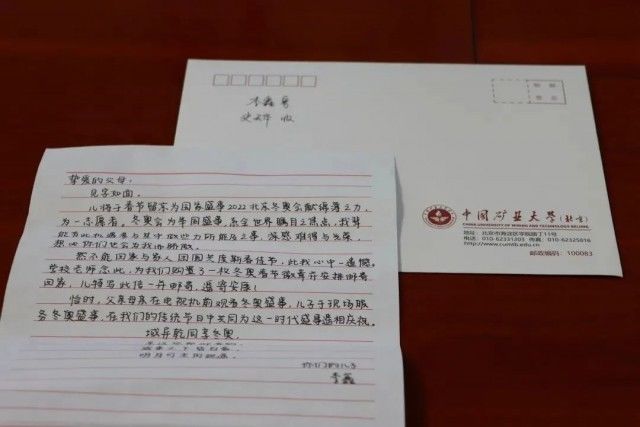 李鑫勇
收
邮票
中国矿业大学(北京)
CHINA UNIVERSITY OF MINING AND TECHNOLOGY-BEIJING
地址:北京市海淀区学院路丁11号
电话:010-62331303 传真:010-62325016
http://www.cumtb.edu.cn
邮政编码:100083
挚爱的父母:
见字如面。
儿将于春节留京为国家盛事2022北京冬奥会献绵薄之力,
为一志愿者。冬奥会为年国盛事,系全世界瞩目之焦点,我辈
能为此盛事与其中做些力所能及之事,深感难得与光荣,
想必你们也会为我而骄傲。
然不能回家与家人团圆共度新春佳节,此我心中一遗憾。
学校老师念此,为我们购置了一枚冬奥春节徽章并安排邮寄
回家,儿特写此信一并邮寄,遥寄安康!
恰时,父亲母亲在电视机前观看冬奥盛事,儿子于现场服
务冬奥盛事,在我们的传统节日中共同为这一时代盛事遥相庆祝。
域异乾同享冬奥,
明月可
你们的儿子
李鑫